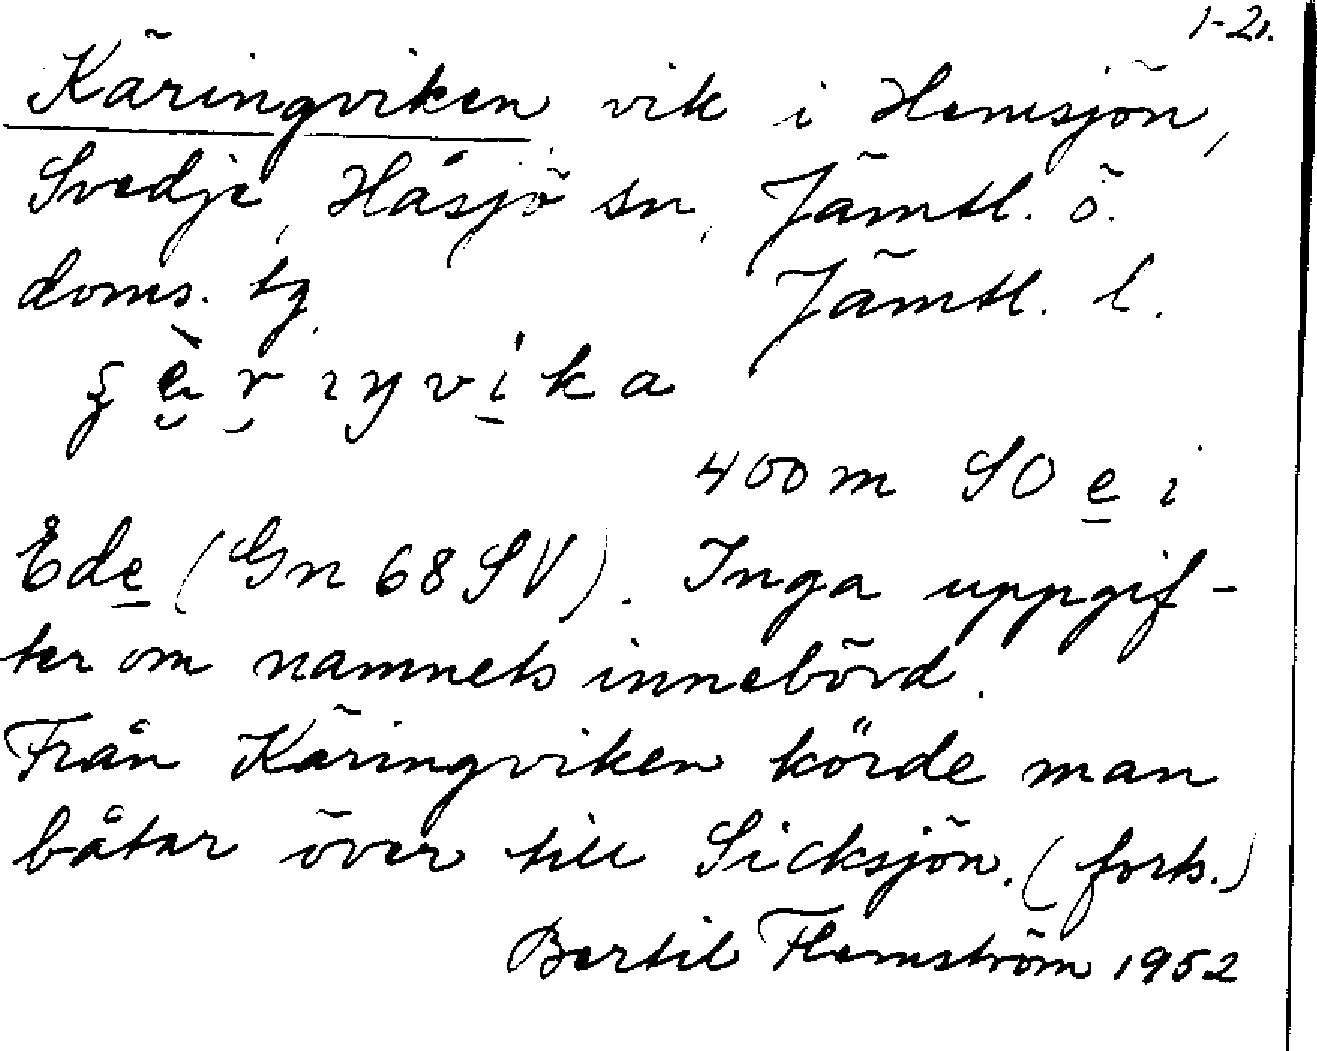 1-2.
Käringviken vik i Hemsjön,
Svedje, Håsjö sn, Jämtl. ö.
doms. tg. Jämtl. l.
400 m SO e i
Ede (Gn 68 SV). Inga uppgif-
ter om namnets innebörd.
Från Käringviken körde man
båtar över till Sicksjön. (forts.)
Bertil Flemström 1952